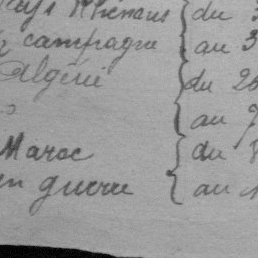 Pays Rhénans { du 3
campagne { au 3
Algérie { du 26
" { au 9
Maroc { du
en guerre { au